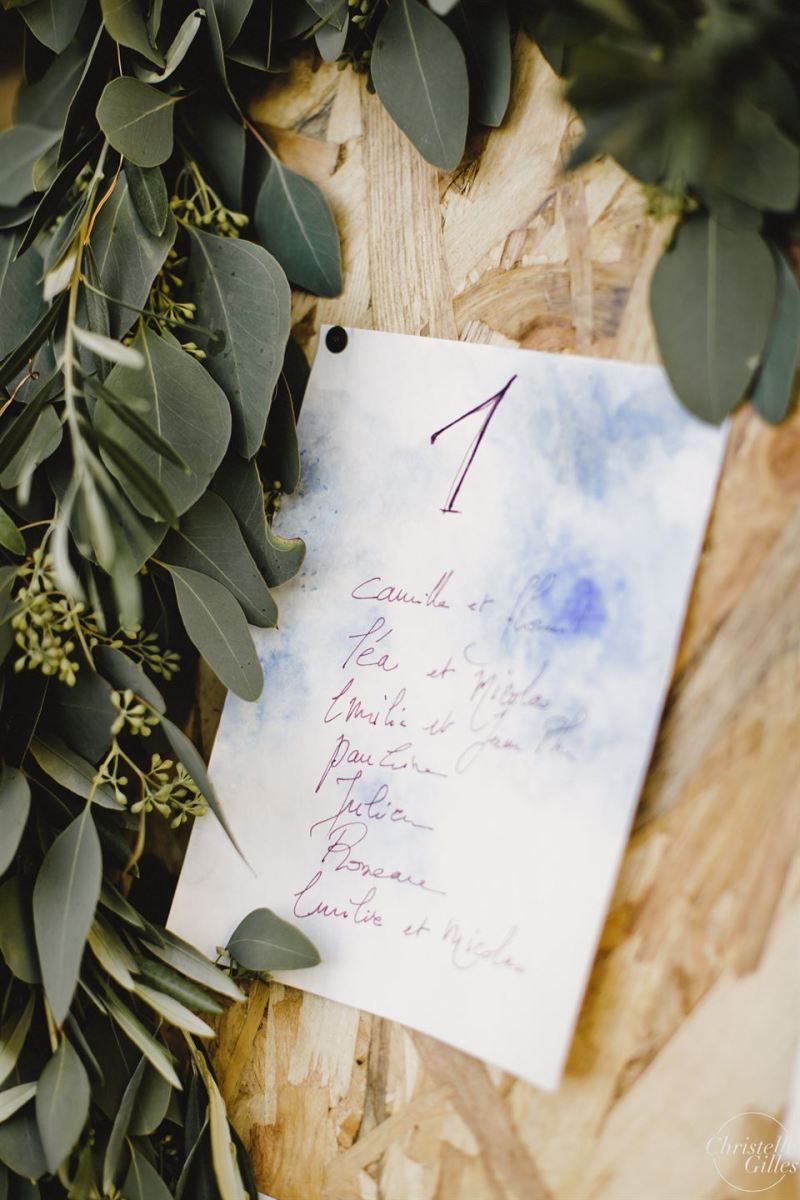 1
Camille et
Léa et Nicolas
Emilie et Jean
Pauline
Julien
Romeane
Emilie et Nicolas
Christelle
Gilles